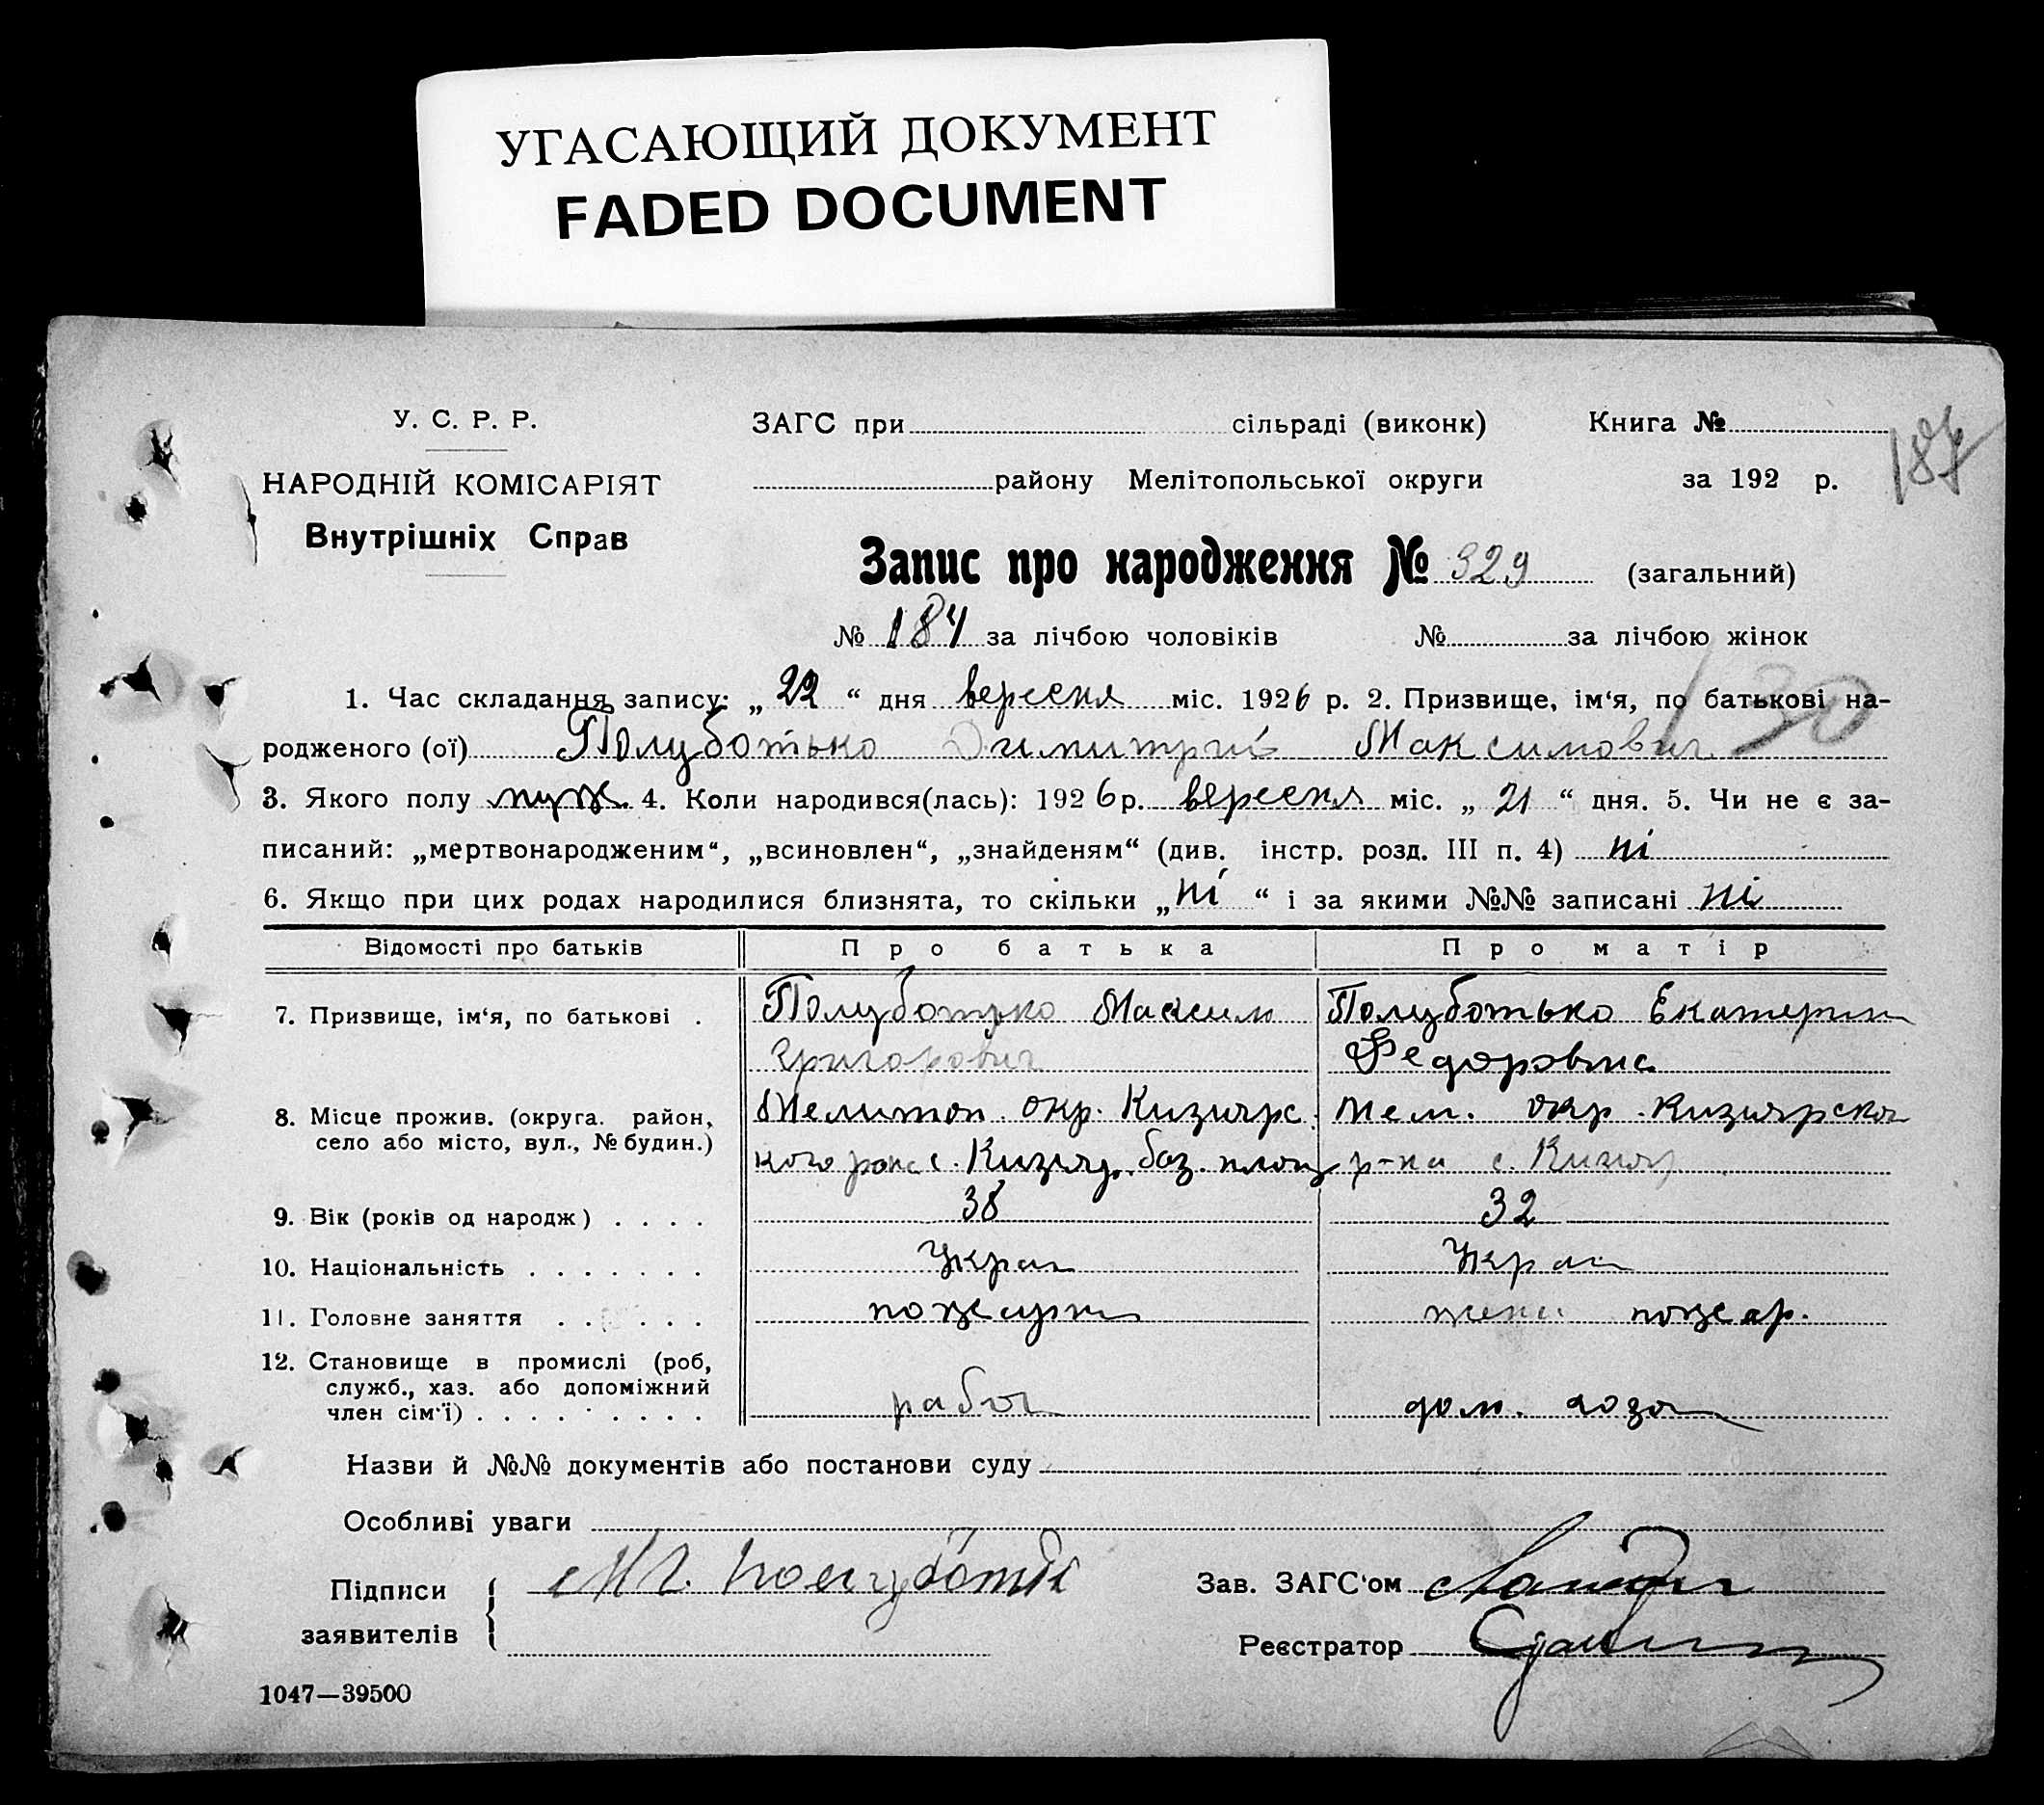 УГАСАЮЩИЙ ДОКУМЕНТ
FADED DOCUMENT
У. С. Р. Р.
ЗАГС при сільраді (виконк) Книга №
187
НАРОДНІЙ КОМІСАРІЯТ
району Мелітопольської округи за 192 р.
Внутрішніх Справ
Запис про народження № 329 (загальний)
№ 184 за лічбою чоловіків № за лічбою жінок
130
1. Час складання запису: „ 22 “ дня вересня міс. 1926 р. 2. Призвище, ім‘я, по батькові на-
родженого (ої) Полуботько Димитрий Максимович
3. Якого полу муж. 4. Коли народився(лась): 1926 р. вересня міс. „ 21 “ дня. 5. Чи не є за-
писаний: „мертвонародженим“, „всиновлен“, „знайденям“ (див. інстр. розд. III п. 4) ні
6. Якщо при цих родах народилися близнята, то скільки „ ні “ і за якими №№ записані ні
Відомості про батьків Про батька Про матір
7. Призвище, ім‘я, по батькові . Полуботько Максим Полуботько Екатерин
Григорович Федоровна
8. Місце прожив. (округа. район, Мелитоп. окр. Кизиярс. Мел. окр. Кизиярско
село або місто, вул., № будин.) кого рона с. Кизияр. баз. площ р-на с. Кизияр
9. Вік (років од народж) . . . . 38 32
10. Національність . . . . . . . Украи Украи
11. Головне заняття . . . . . . пожарн жена пожар.
12. Становище в промислі (роб,
служб., хаз. або допоміжний
член сім‘ї) . . . . . . . . . рабоч дом. хозя
Назви й №№ документів або постанови суду
Особливі уваги
Підписи М Г. Полуботьк Зав. ЗАГС‘ом
заявителів Реєстратор
1047—39500